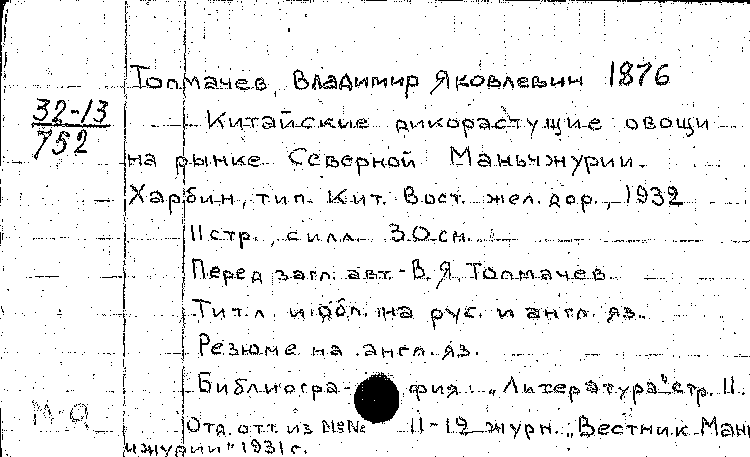 Толмачев, Владимир Яковлевич 1876
32-13
752
Китайские дикорастущие овощи
на рынке Северной Маньчжурии.
Харбин, тип. Кит. Вост. жел. дор., 1932
11 стр., с илл. 30 см.
Перед загл. авт.- В. Я. Толмачев
Тит. л. и обл. на рус. и англ. яз.
Резюме на англ. яз.
Библиогра- фия: „Литература" стр. 11.
М-а
Отд. отт. из №№ 11-12 журн. „Вестник Мань
чжурии" 1931 г.